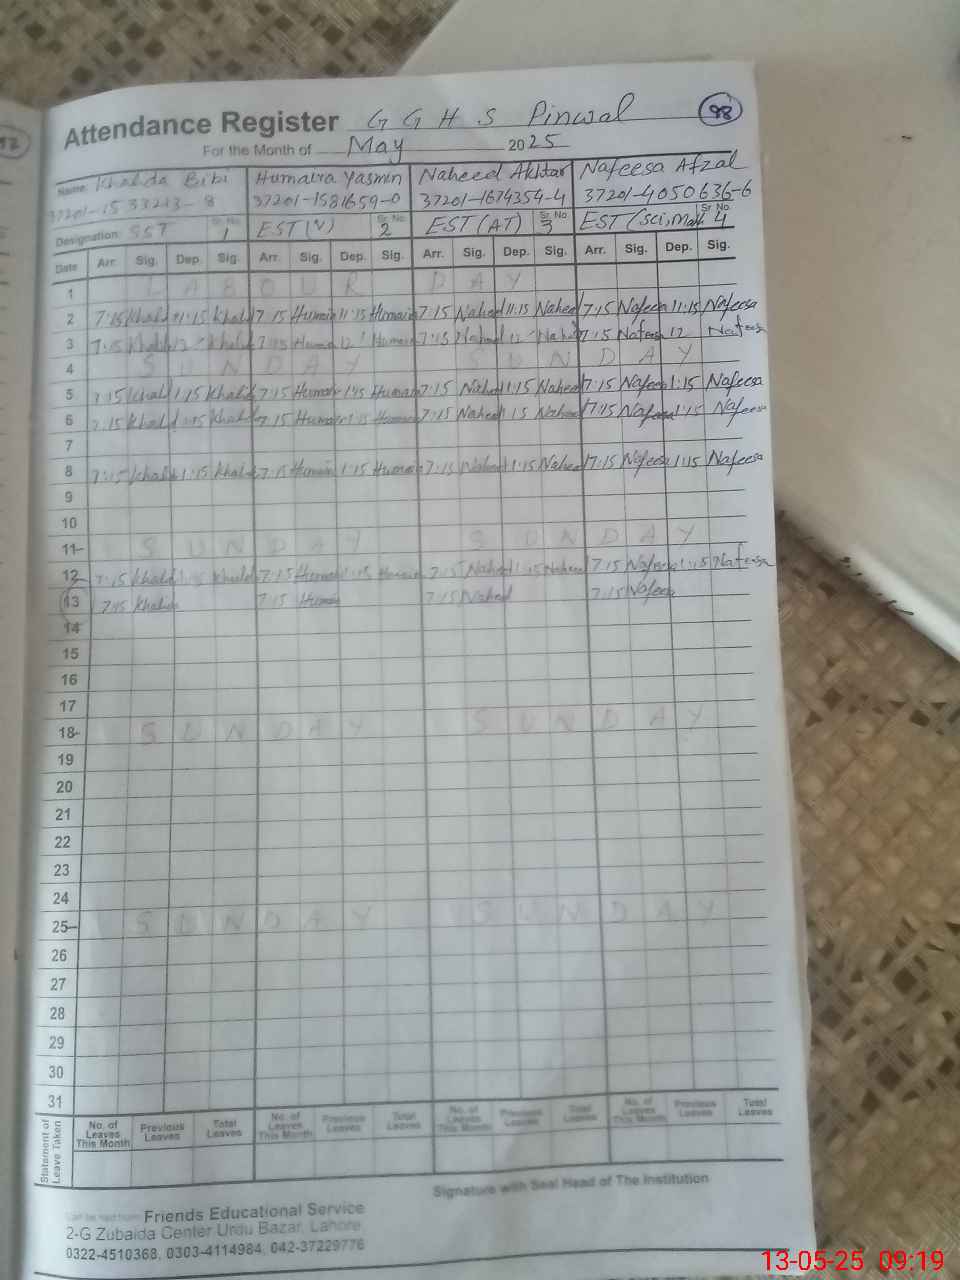 92
98
Attendance Register G G H S Pinwal
For the Month of May 2025
Name: Khalida Bibi Humaira Yasmin Naheed Akhtar Nafeesa Afzal
37201-1533213-8 37201-1581659-0 37201-1674354-4 37201-4050636-6
Designation: SST Sr. No. 1 EST (V) Sr. No. 2 EST (AT) Sr. No. 3 EST (Sci, Mat Sr. No. 4
Date Arr. Sig. Dep. Sig. Arr. Sig. Dep. Sig. Arr. Sig. Dep. Sig. Arr. Sig. Dep. Sig.
1 L A B O U R D A Y
2 7:15 Khalid 11:15 Khalid 7:15 Humair 11:15 Humaira 7:15 Naheed 11:15 Naheed 7:15 Nafees 11:15 Nafeesa
3 7:15 Khalid 12 Khalid 7:15 Humai 12 Humair 7:15 Naheed 12 Nahe 7:15 Nafeesa 12 Nafeesa
4 S U N D A Y S U N D A Y
5 7:15 Khalid 1:15 Khalid 7:15 Humair 1:15 Humair 7:15 Nahed 1:15 Naheed 7:15 Nafees 1:15 Nafeesa
6 7:15 Khalid 1:15 Khalid 7:15 Humair 1:15 Humair 7:15 Nahed 1:15 Naheed 7:15 Nafees 1:15 Nafeesa
7
8 7:15 Khalid 1:15 Khalid 7:15 Humair 1:15 Humair 7:15 Nahed 1:15 Naheed 7:15 Nafees 1:15 Nafeesa
9
10
11 S U N D A Y S U N D A Y
12 7:15 Khalid 1:15 Khalid 7:15 Humair 1:15 Humair 7:15 Nahed 1:15 Naheed 7:15 Nafees 1:15 Nafeesa
13 7:15 Khalid 7:15 Humair 7:15 Nahed 7:15 Nafees
14
15
16
17
18 S U N D A Y S U N D A Y
19
20
21
22
23
24
25 S U N D A Y S U N D A Y
26
27
28
29
30
31
Statement of Leave Taken
No. of Leaves This Month Previous Leaves Total Leaves No. of Leaves This Month Previous Leaves Total Leaves No. of Leaves This Month Previous Leaves Total Leaves No. of Leaves This Month Previous Leaves Total Leaves
Signature with Seal Head of The Institution
Can be had from: Friends Educational Service
2-G Zubaida Center Urdu Bazar, Lahore,
0322-4510368, 0303-4114984, 042-37229776
13-05-25 09:19